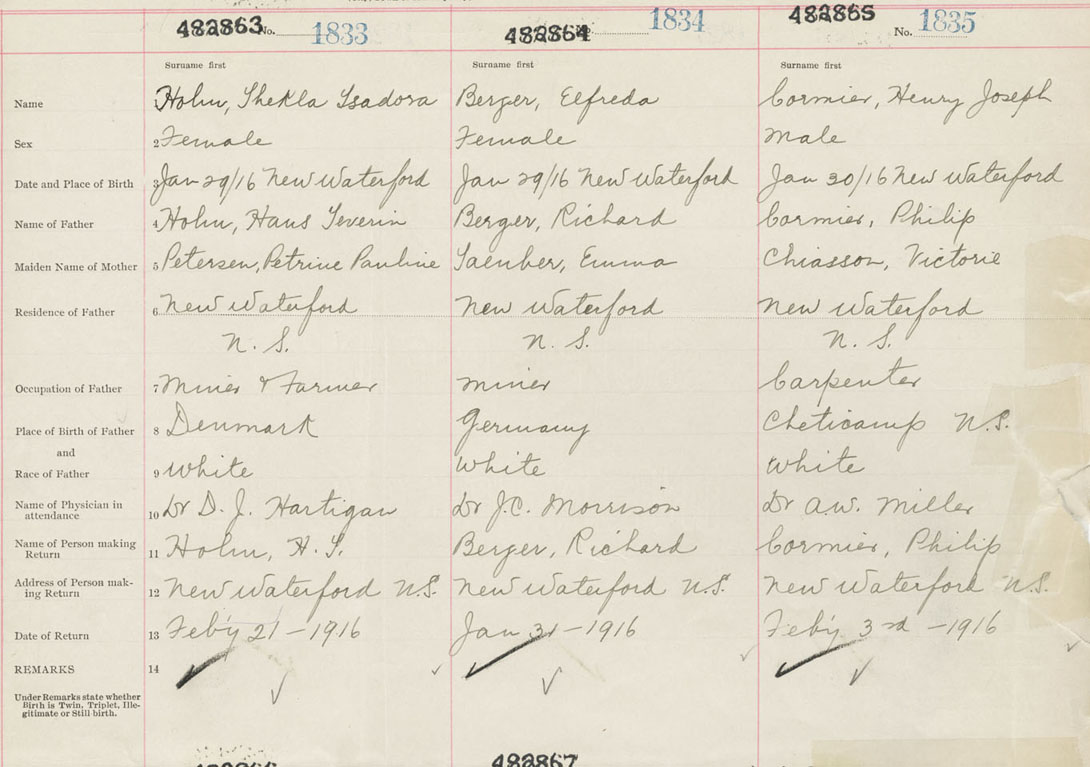 482863 No. 1833 482864 1834 482865 No. 1835
Surname first Surname first Surname first
Name Holm, Thekla Isadora Berger, Elfreda Cormier, Henry Joseph
Sex 2 Female Female Male
Date and Place of Birth 3 Jan 29/16 New Waterford Jan 29/16 New Waterford Jan 30/16 New Waterford
Name of Father 4 Holm, Hans Severin Berger, Richard Cormier, Philip
Maiden Name of Mother 5 Petersen, Petrine Pauline Emma Chiasson, Victorie
Residence of Father 6 New Waterford New Waterford New Waterford
N. S. N. S. N. S.
Occupation of Father 7 Miner & Farmer Miner Carpenter
Place of Birth of Father 8 Denmark Germany Cheticamp N.S.
and
Race of Father 9 White White White
Name of Physician in
attendance 10 Dr D. J. Hartigan Dr J.C. Morrison Dr A.W. Miller
Name of Person making
Return 11 Holm, H. S. Berger, Richard Cormier, Philip
Address of Person mak-
ing Return 12 New Waterford N.S. New Waterford N.S. New Waterford N.S.
Date of Return 13 Feb'y 21 - 1916 Jan 31 - 1916 Feb'y 3rd - 1916
REMARKS 14
Under Remarks state whether
Birth is Twin, Triplet, Ille-
gitimate or Still-birth.
482867